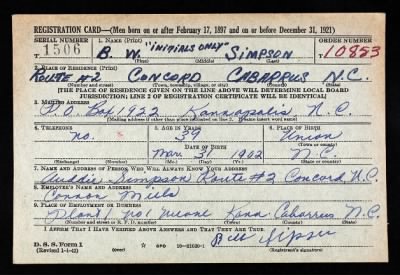 REGISTRATION CARD—(Men born on or after February 17, 1897 and on or before December 31, 1921)
SERIAL NUMBER 1. NAME (Print) ORDER NUMBER
1506 B. W. "INITIALS ONLY" SIMPSON 10853
(First) (Middle) (Last)
2. PLACE OF RESIDENCE (Print)
ROUTE #2 CONCORD CABARRUS N.C.
(Number and street) (Town, township, village, or city) (County) (State)
[THE PLACE OF RESIDENCE GIVEN ON THE LINE ABOVE WILL DETERMINE LOCAL BOARD
JURISDICTION; LINE 2 OF REGISTRATION CERTIFICATE WILL BE IDENTICAL]
3. MAILING ADDRESS
P.O. Box 1922 Kannapolis N.C.
[Mailing address if other than place indicated on line 2. If same insert word same]
4. TELEPHONE 5. AGE IN YEARS 6. PLACE OF BIRTH
no. 39 Union
DATE OF BIRTH (Town or county)
Mar. 31 1902 N.C.
(Exchange) (Number) (Mo.) (Day) (Yr.) (State or country)
7. NAME AND ADDRESS OF PERSON WHO WILL ALWAYS KNOW YOUR ADDRESS
Simpson Route #2 Concord N.C.
8. EMPLOYER'S NAME AND ADDRESS
Cannon Mills
9. PLACE OF EMPLOYMENT OR BUSINESS
Plant no 1 Kann Cabarrus N.C.
(Number and street or R. F. D. number) (Town) (County) (State)
I AFFIRM THAT I HAVE VERIFIED ABOVE ANSWERS AND THAT THEY ARE TRUE.
D. S. S. Form 1
(Revised 1-1-42) GPO 16—21630-1 (Registrant's signature)